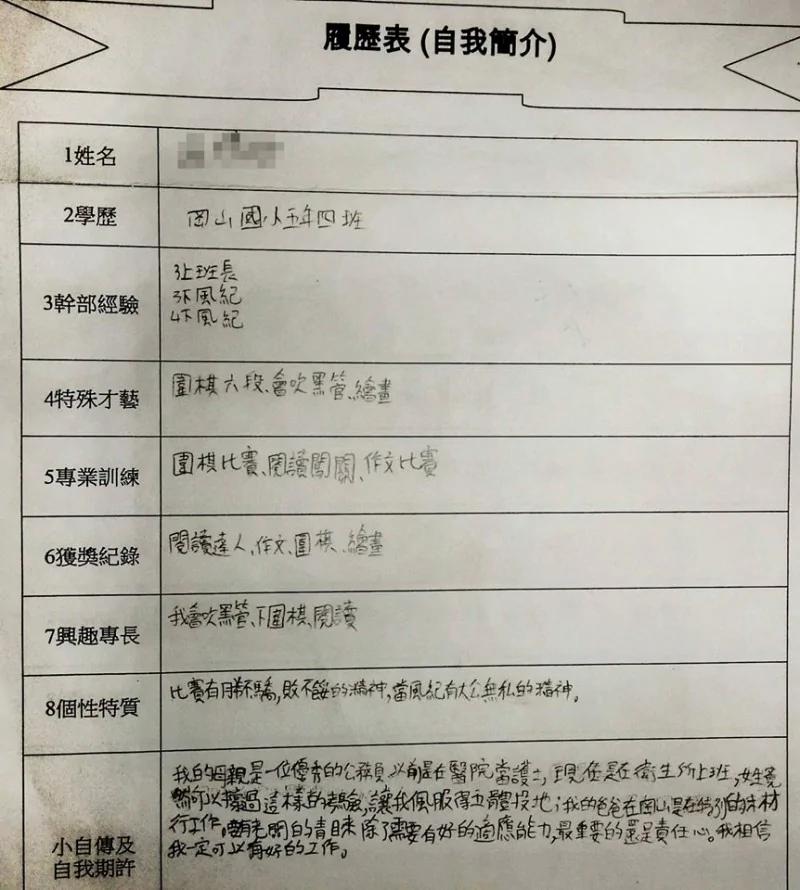 履歷表 (自我簡介)
1姓名
2學歷
岡山國小五年四班
3幹部經驗
3上班長
3下風紀
4下風紀
4特殊才藝
圍棋六段、會吹黑管、繪畫
5專業訓練
圍棋比賽、閱讀闖關、作文比賽
6獲獎紀錄
閱讀達人、作文、圍棋、繪畫
7興趣專長
我會吹黑管、下圍棋、閱讀
8個性特質
比賽有勝不驕,敗不餒的精神,當風紀有大公無私的精神。
小自傳及
自我期許
我的母親是一位優秀的公務員,以前是在醫院當護士,現任是在衛生所上班,她竟
可以撐過這樣的考驗,讓我佩服得五體投地;我的爸爸在岡山是在特別的床材
行工作,老闆的青睞除了需要有好的適應能力,最重要的還是責任心。我相信
我一定可以有好的工作。